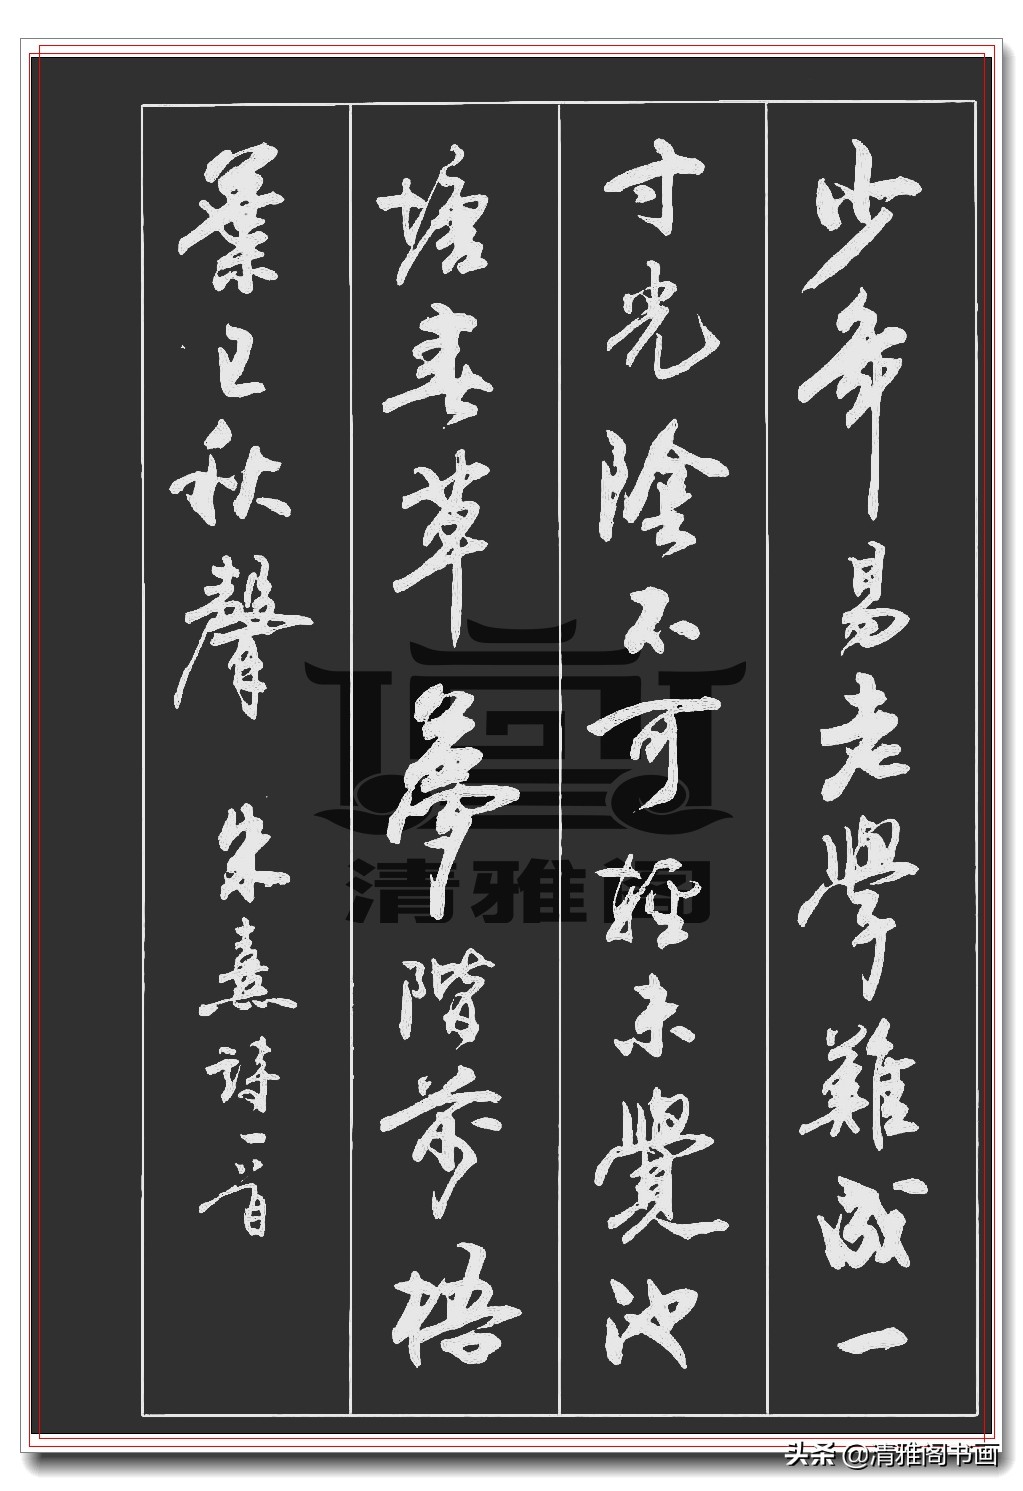 少年易老學難成一
寸光陰不可輕未覺池
塘春草夢階前梧
葉已秋聲 朱熹詩一首
清雅阁
头条 @清雅阁书画